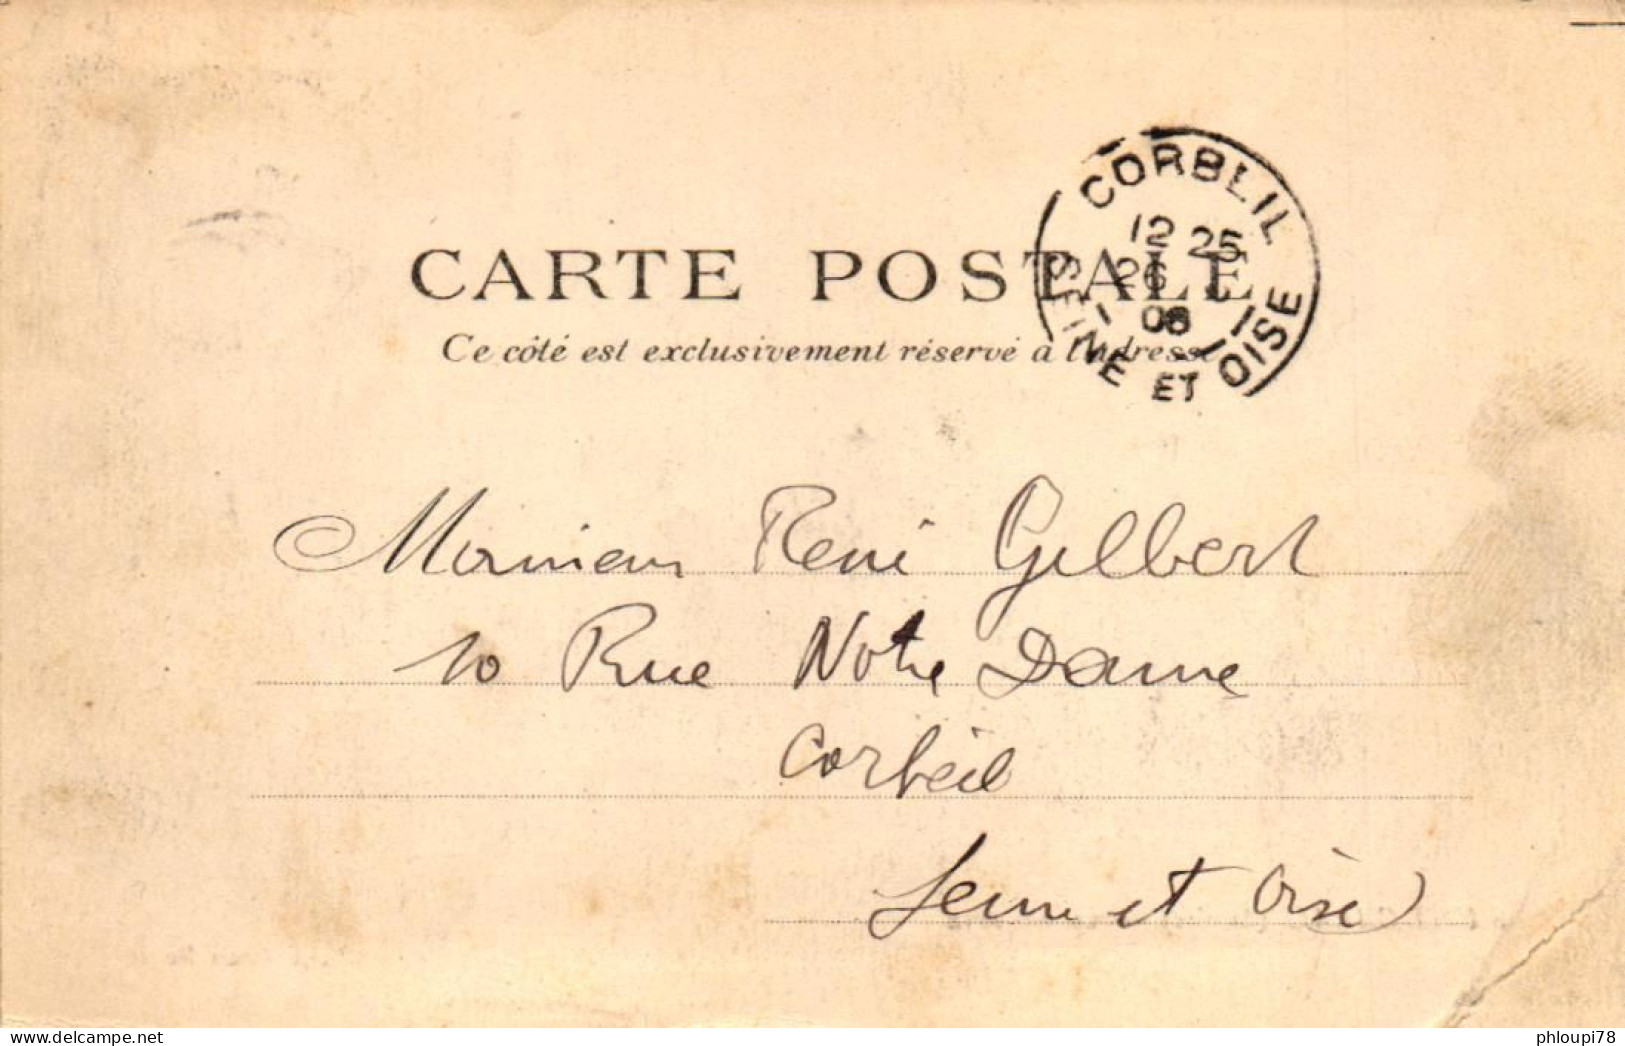 CORBEIL
12 25
26 - 1
06
SEINE ET OISE
CARTE POSTALE
Ce côté est exclusivement réservé à l'adresse
Monsieur René Gilbert
10 Rue Notre Dame
Corbeil
Seine et Oise
www.delcampe.net
phloupi78